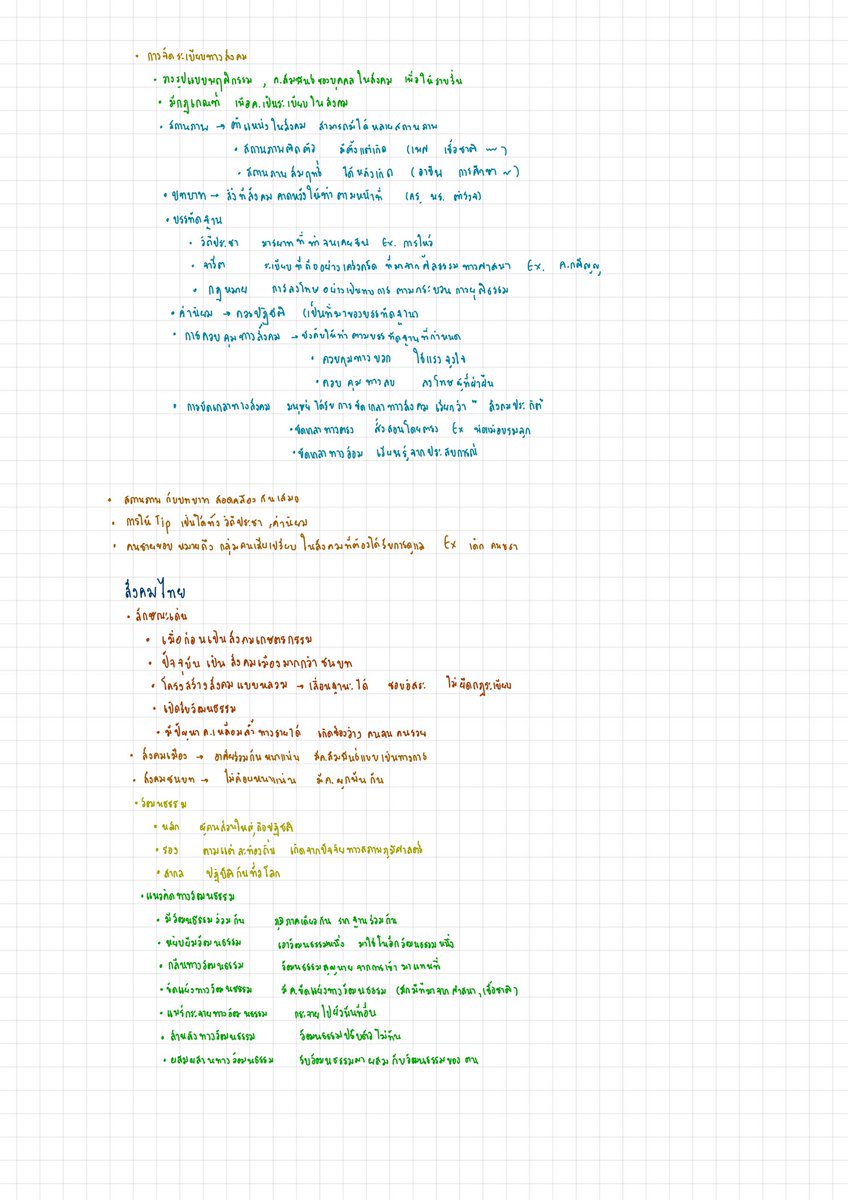 • การจัดระเบียบทางสังคม
• วางรูปแบบพฤติกรรม , ค.สัมพันธ์ของบุคคลในสังคม เพื่อให้ราบรื่น
• มีกฎเกณฑ์ เพื่อค.เป็นระเบียบในสังคม
• สถานภาพ → ตำแหน่งในสังคม สามารถมีได้หลายสถานภาพ
• สถานภาพติดตัว มีตั้งแต่เกิด (เพศ เชื้อชาติ ~)
• สถานภาพสัมฤทธิ์ ได้หลังเกิด (อาชีพ การศึกษา ~)
• บทบาท → สิ่งที่สังคมคาดหวังให้ทำตามหน้าที่ (ครู นร. ตำรวจ)
• บรรทัดฐาน
• วิถีประชา มารยาทที่ทำจนเคยชิน Ex. การไหว้
• จารีต ระเบียบที่ถืออย่างเคร่งครัด ที่มาจากศีลธรรมทางศาสนา Ex. ค.กตัญญู
• กฎหมาย การลงโทษอย่างเป็นทางการ ตามกระบวนการยุติธรรม
• ค่านิยม → ควรปฏิบัติ (เป็นที่มาของบรรทัดฐาน)
• การควบคุมทางสังคม → บังคับให้ทำตามบรรทัดฐานที่กำหนด
• ควบคุมทางบวก ใช้แรงจูงใจ
• ควบคุมทางลบ ลงโทษผู้ที่ฝ่าฝืน
• การขัดเกลาทางสังคม มนุษย์ได้รับการขัดเกลาทางสังคม เรียกว่า " สังคมประกิต"
• ขัดเกลาทางตรง สั่งสอนโดยตรง Ex พ่อแม่อบรมลูก
• ขัดเกลาทางอ้อม เรียนรู้จากประสบการณ์
• สถานภาพกับบทบาทสอดคล้องกันเสมอ
• การให้ Tip เป็นได้ทั้งวิถีประชา ,ค่านิยม
• คนชายขอบ หมายถึง กลุ่มคนเสียเปรียบในสังคมที่ต้องได้รับการดูแล Ex เด็ก คนชรา
สังคมไทย
• ลักษณะเด่น
• เมื่อก่อนเป็นสังคมเกษตรกรรม
• ปัจจุบันเป็นสังคมเมืองมากกว่าชนบท
• โครงสร้างสังคมแบบหลวม → เลื่อนฐานะได้ ชอบอิสระ ไม่ยึดกฎระเบียบ
• เปิดรับวัฒนธรรม
• มีปัญหาค.เหลื่อมล้ำทางรายได้ เกิดช่องว่าง คนจน คนรวย
• สังคมเมือง → อาศัยร่วมกันหนาแน่น มีค.สัมพันธ์แบบเป็นทางการ
• สังคมชนบท → ไม่ค่อยหนาแน่น มีค.ผูกพันกัน
• วัฒนธรรม
• หลัก ผู้คนส่วนใหญ่ถือปฏิบัติ
• รอง ตามแต่ละท้องถิ่น เกิดจากปัจจัยทางสภาพภูมิศาสตร์
• สากล ปฏิบัติกันทั่วโลก
• แนวคิดทางวัฒนธรรม
• มีวัฒนธรรมร่วมกัน ภูมิภาคเดียวกัน รากฐานร่วมกัน
• หยิบยืมวัฒนธรรม เอาวัฒนธรรมหนึ่ง มาใช้ในอีกวัฒนธรรมหนึ่ง
• กลืนทางวัฒนธรรม วัฒนธรรมสูญหายจากการเข้ามาแทนที่
• ขัดแย้งทางวัฒนธรรม มีค.ขัดแย้งทางวัฒนธรรม (มักมีที่มาจากศาสนา,เชื้อชาติ)
• แพร่กระจายทางวัฒนธรรม กระจายไปยังพื้นที่อื่น
• ล้าหลังทางวัฒนธรรม วัฒนธรรมปรับตัวไม่ทัน
• ผสมผสานทางวัฒนธรรม รับวัฒนธรรมมาผสมกับวัฒนธรรมของตน